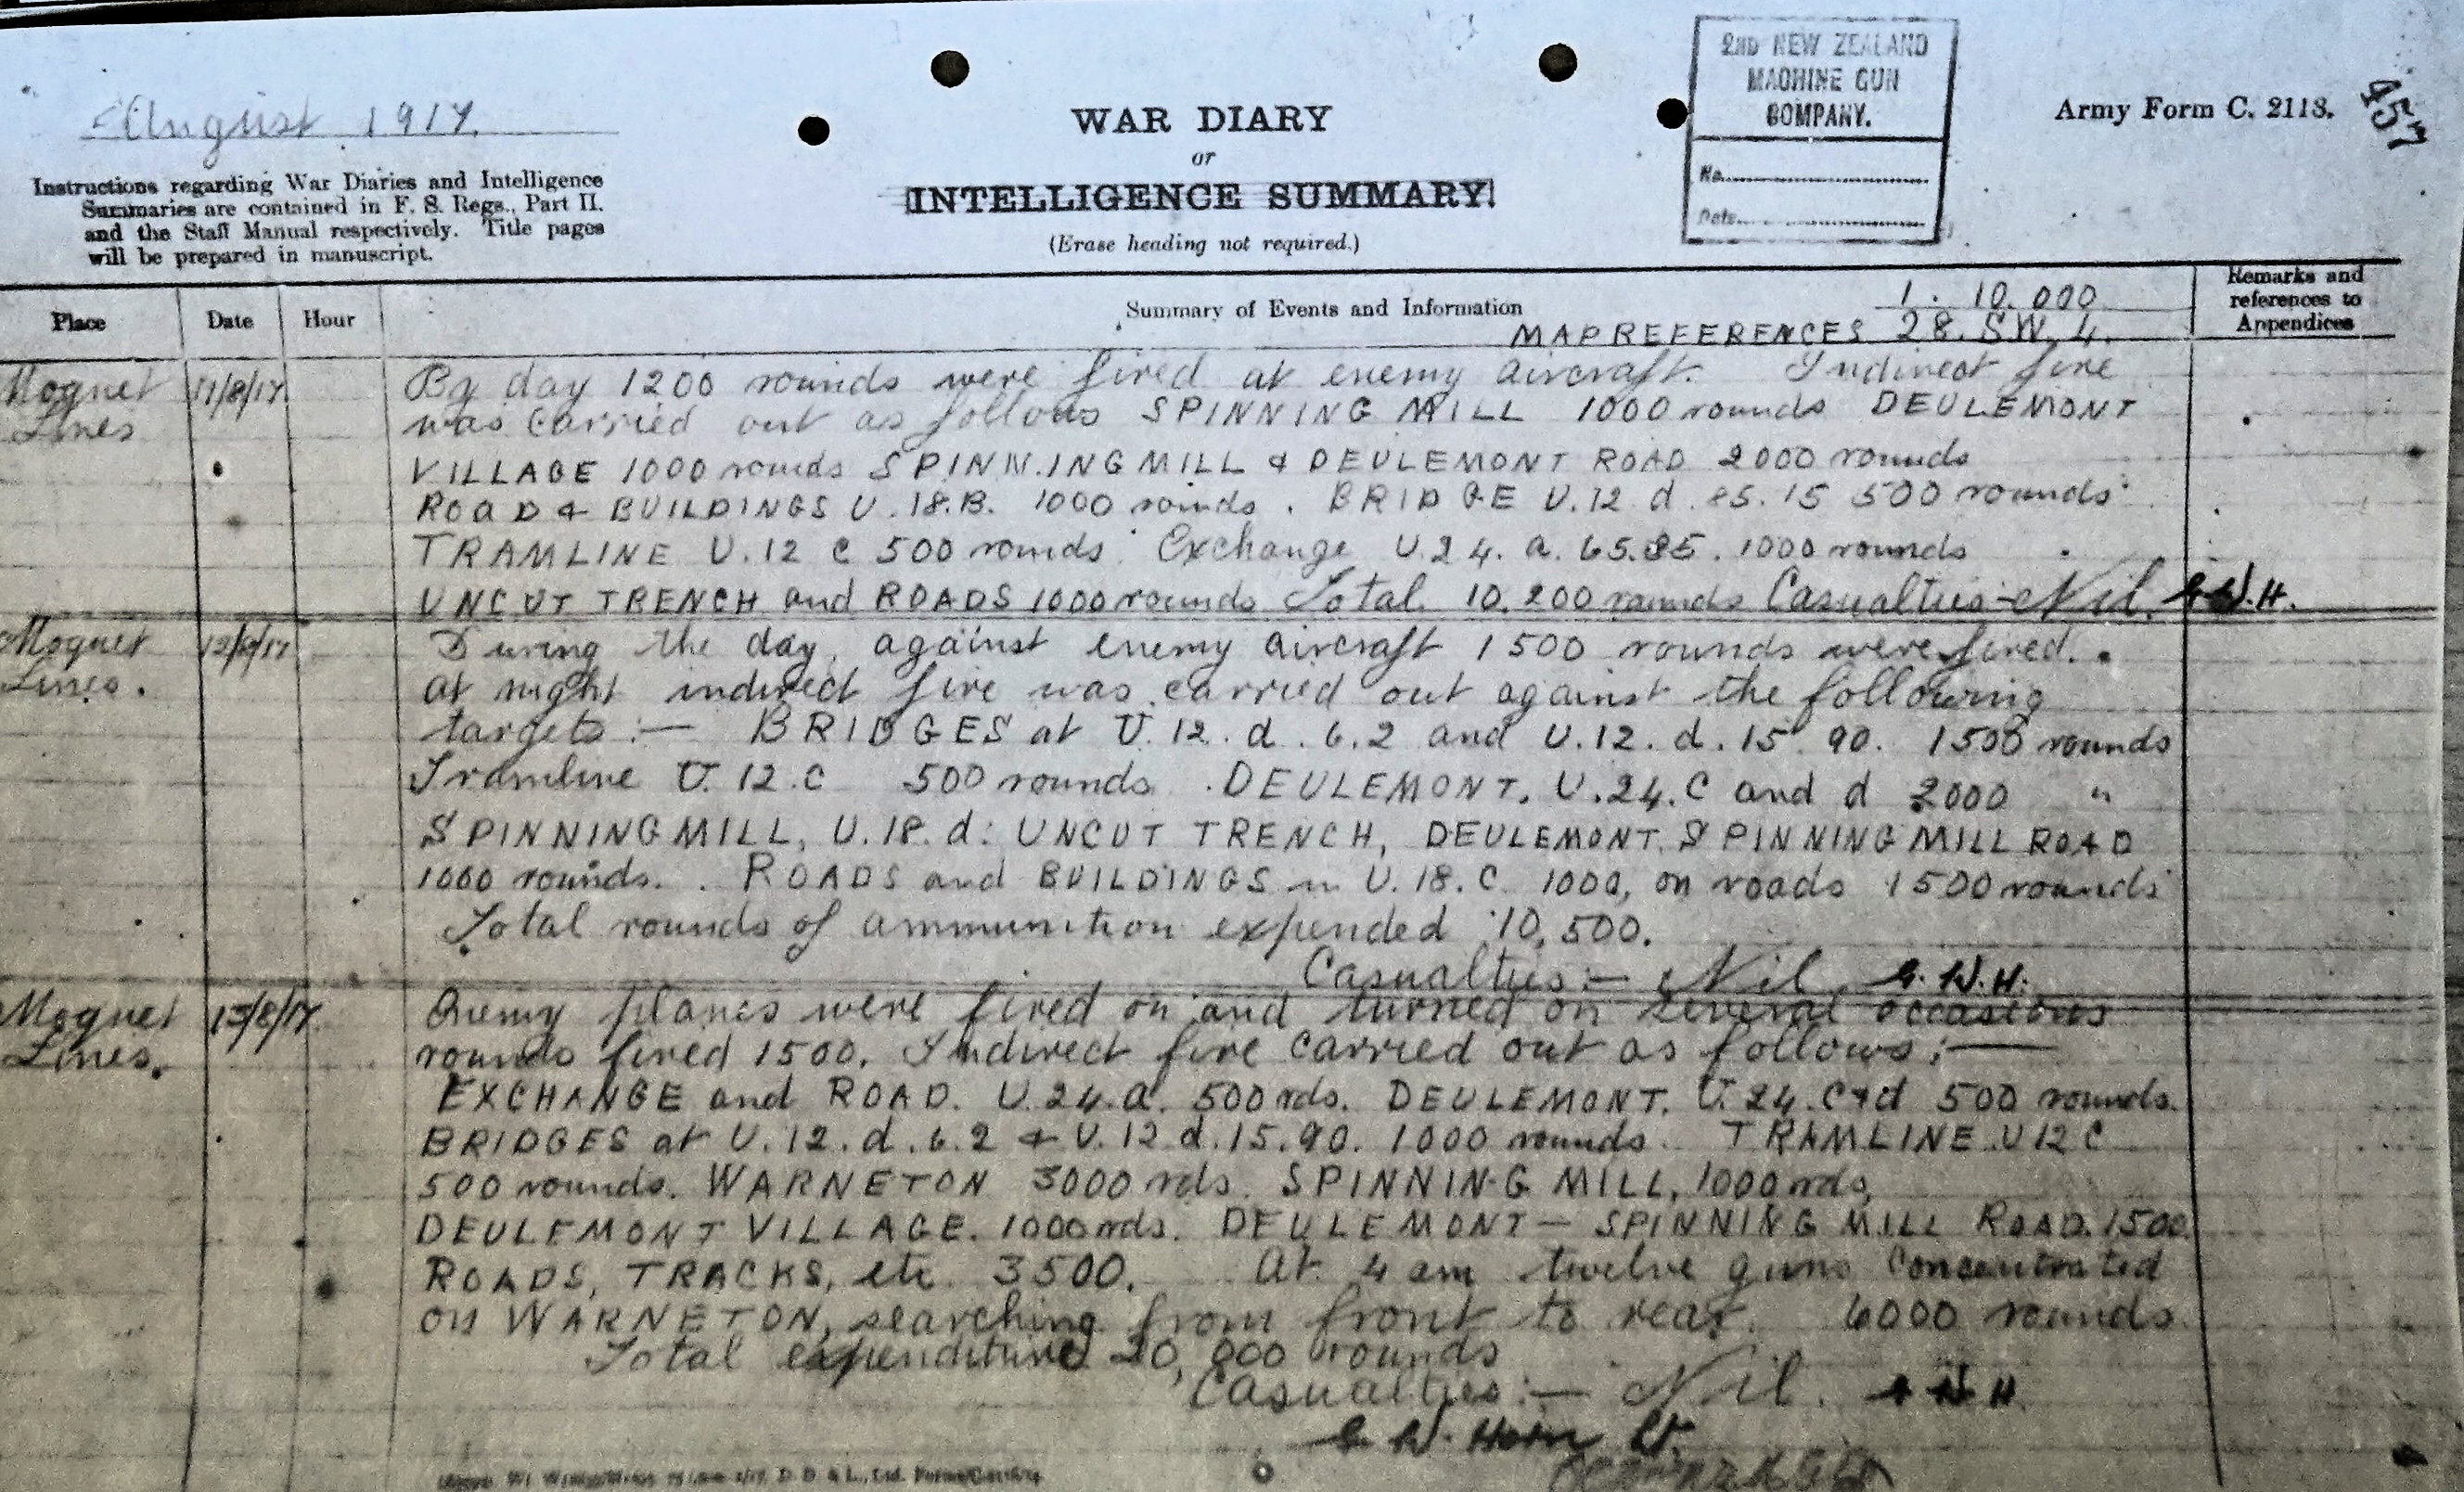 August 1917.
Instructions regarding War Diaries and Intelligence
Summaries are contained in F. S. Regs., Part II.
and the Staff Manual respectively. Title pages
will be prepared in manuscript.
WAR DIARY
or
INTELLIGENCE SUMMARY
(Erase heading not required.)
2ND NEW ZEALAND
MACHINE GUN
COMPANY.
No.
Date
Army Form C. 2118.
457
Place
Date
Hour
Summary of Events and Information
1. 10.000
MAP REFERENCES 28. S.W. 4.
Remarks and
references to
Appendices
Moquet
Lines
11/8/17.
By day 1200 rounds were fired at enemy aircraft. Indirect fire
was carried out as follows SPINNING MILL 1000 rounds DEULEMONT
VILLAGE 1000 rounds SPINNING MILL & DEULEMONT ROAD 2000 rounds
ROAD & BUILDINGS U.18.B. 1000 rounds. BRIDGE U.12.d.85.15 500 rounds
TRAMLINE U.12 C 500 rounds. Exchange U.24.a.65.85. 1000 rounds
UNCUT TRENCH and ROADS 1000 rounds Total 10.200 rounds Casualties - Nil. G.W.H.
Moquet
Lines.
12/8/17
During the day, against enemy aircraft 1500 rounds were fired.
at night indirect fire was carried out against the following
targets :— BRIDGES at U.12.d.6.2 and U.12.d.15.90. 1500 rounds
Tramline U.12.C 500 rounds. DEULEMONT. U.24.C and d 2000 "
SPINNING MILL, U.18.d: UNCUT TRENCH, DEULEMONT. SPINNING MILL ROAD
1000 rounds. ROADS and BUILDINGS in U.18.C 1000, on roads 1500 rounds
Total rounds of ammunition expended 10,500.
Casualties :— Nil G.W.H.
Moquet
Lines.
13/8/17.
Enemy planes were fired on and turned on several occasions
rounds fired 1500. Indirect fire carried out as follows :—
EXCHANGE and ROAD. U.24.a. 500 rds. DEULEMONT. U.24.C+d 500 rounds.
BRIDGES at U.12.d.6.2 + U.12 d.15.90. 1000 rounds. TRAMLINE U 12 C
500 rounds. WARNETON 3000 rds. SPINNING MILL, 1000 rds,
DEULEMONT VILLAGE. 1000 rds. DEULEMONT — SPINNING MILL ROAD. 1500
ROADS, TRACKS, etc. 3500. At 4 am twelve guns concentrated
on WARNETON, searching from front to rear. 6000 rounds.
Total expenditure 20,000 rounds
Casualties :— Nil. G.W.H.
G. W. Horn Lt.